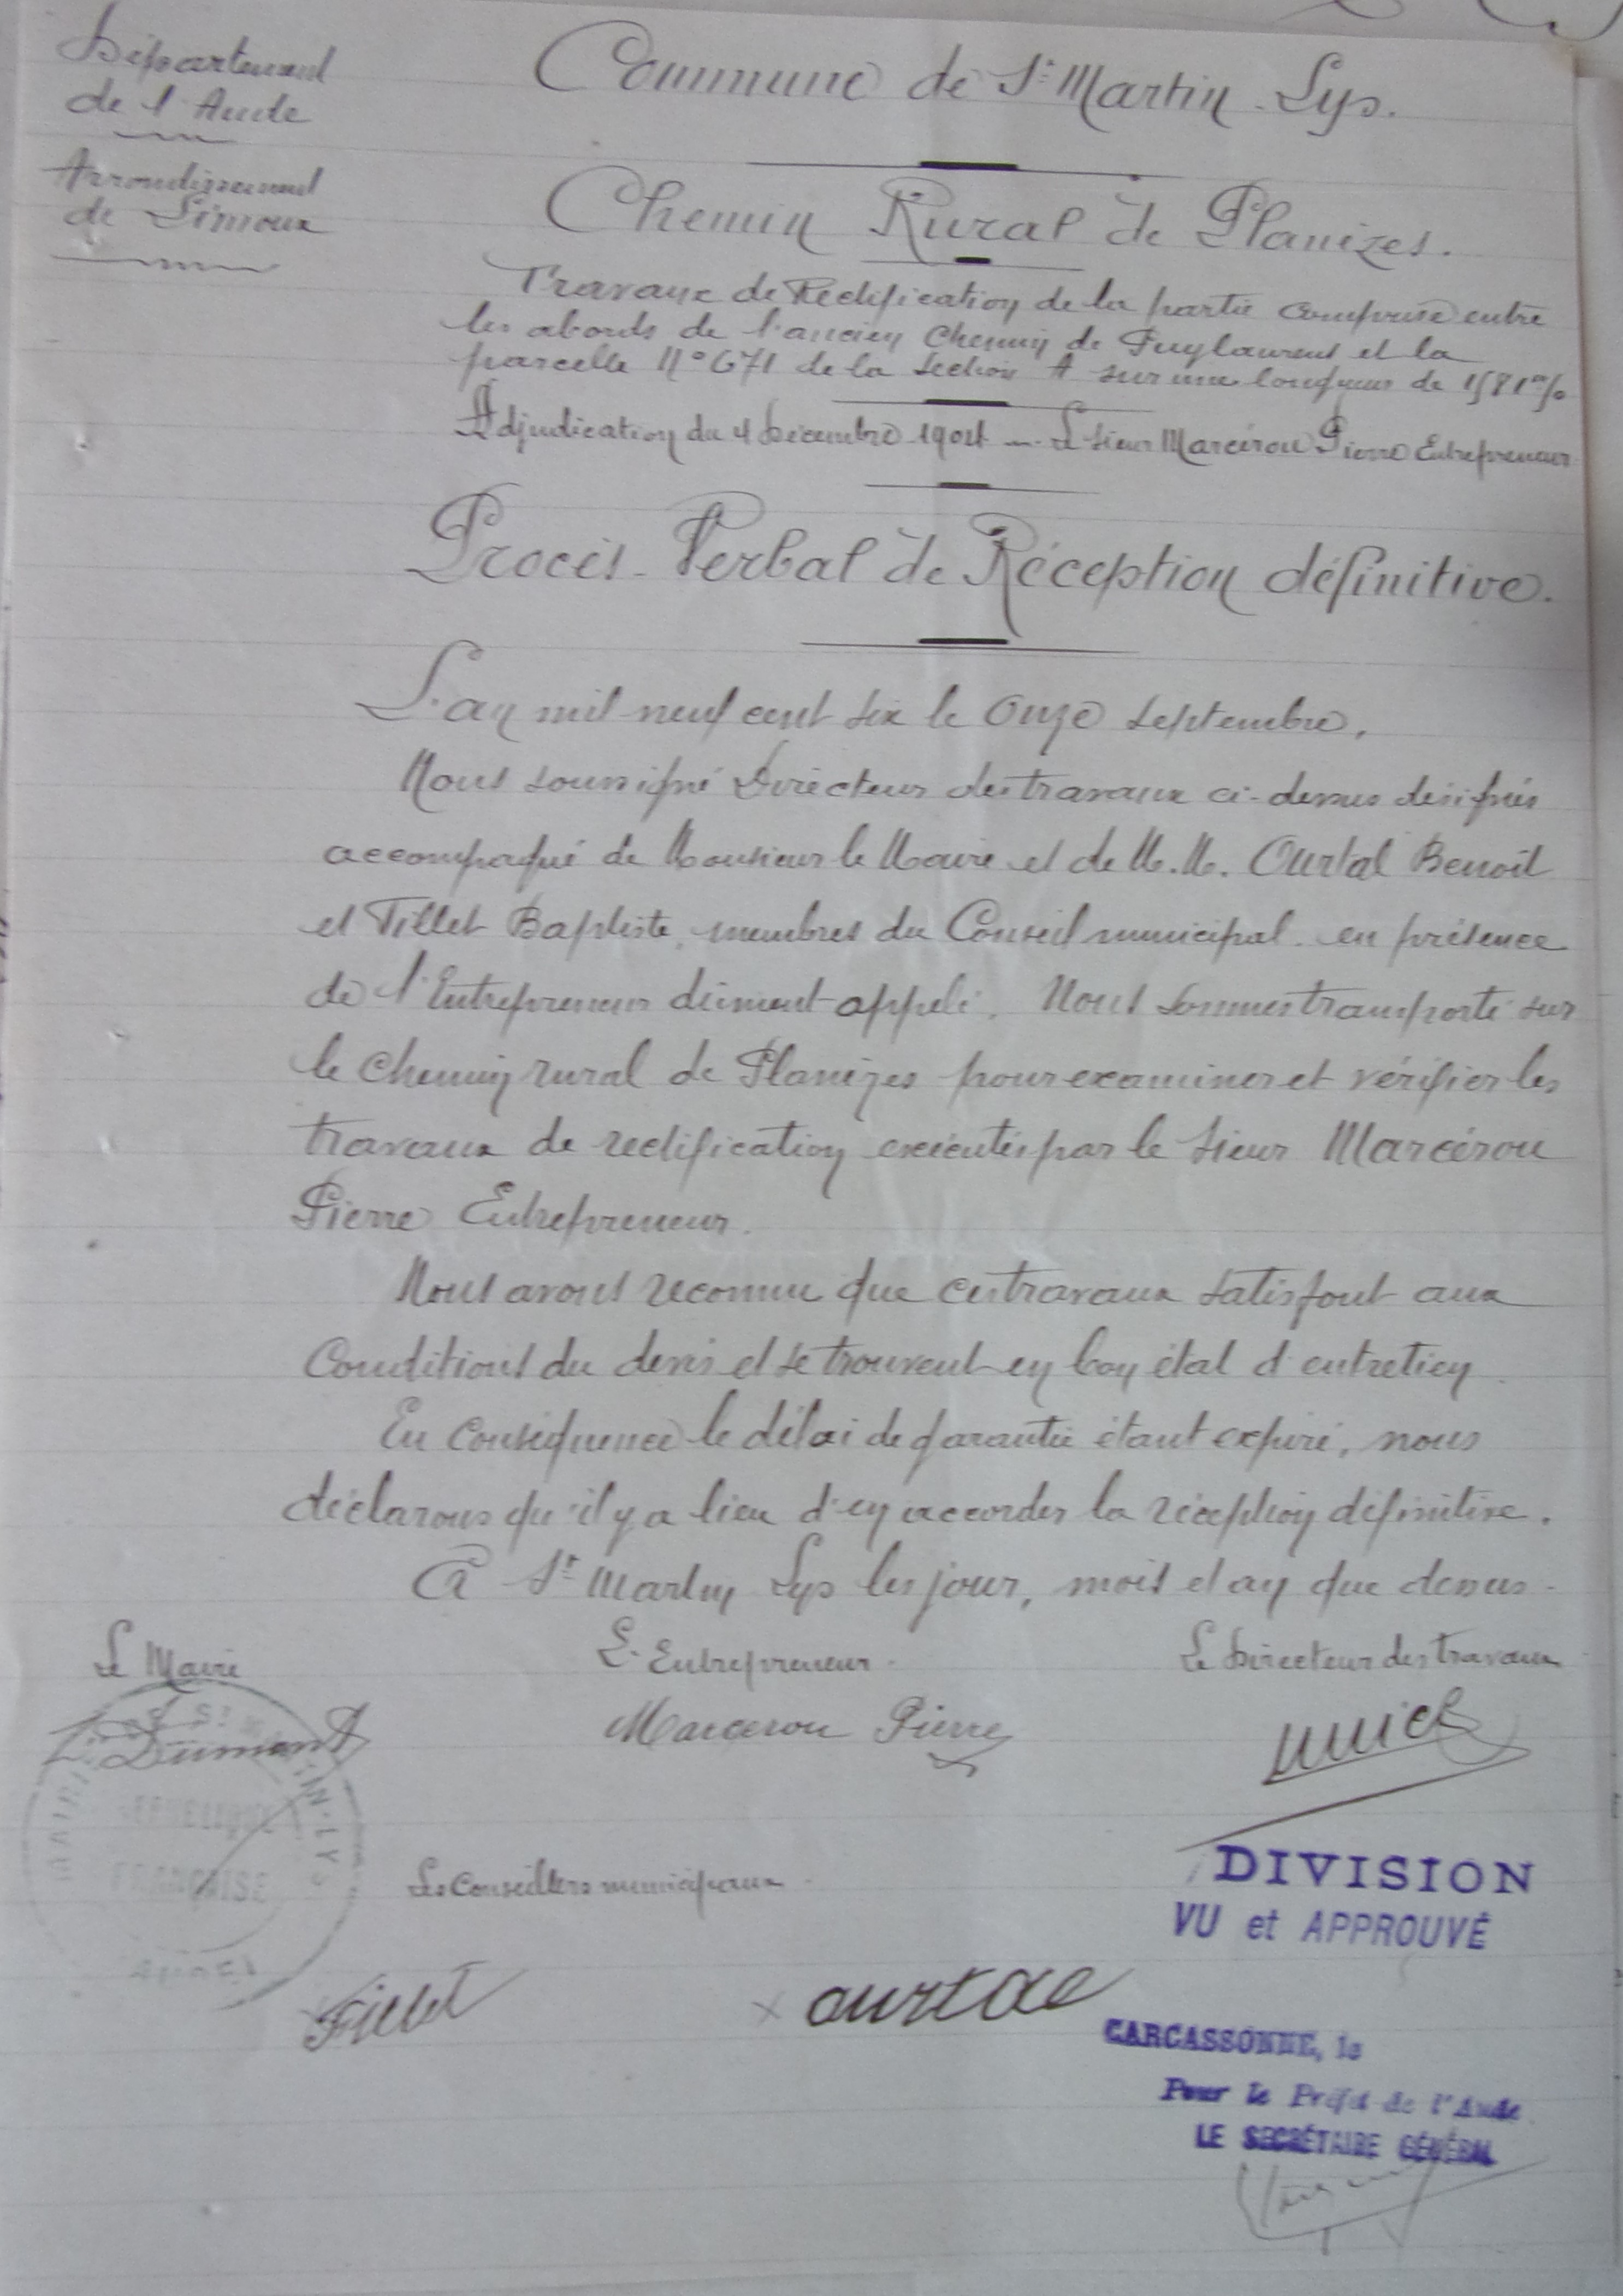 Département
de l'Aude
Arrondissement
de Limoux
Commune de St Martin-Lys.
Chemin Rural de Planizes.
Travaux de Rectification de la partie comprise entre
les abords de l'ancien Chemin de Puylaurens et la
parcelle N° 671 de la Section A sur une longueur de
Adjudication du 4 Décembre 1904 — Le Sieur Marcérou Pierre Entrepreneur
Procès-Verbal de Réception définitive.
L'an mil neuf cent six le onze septembre,
Nous soussigné Directeur des travaux ci-dessus désignés
accompagné de Monsieur le Maire et de M.M. Ourtal Benoît
et Tillet Baptiste, membres du Conseil municipal en présence
de l'Entrepreneur dûment appelé. Nous sommes transporté sur
le chemin rural de Planizes pour examiner et vérifier les
travaux de rectification exécutés par le Sieur Marcérou
Pierre Entrepreneur.
Nous avons reconnu que ces travaux satisfont aux
Conditions du devis et se trouvent en bon état d'entretien
En Conséquence le délai de garantie étant expiré, nous
déclarons qu'il y a lieu d'en accorder la réception définitive.
A St Martin Lys les jour, mois et an que dessus.
Le Maire
L'Entrepreneur.
Le Directeur des travaux
Dumont
Marcerou Pierre
MAIRIE DE ST MARTIN-LYS
RÉPUBLIQUE
FRANÇAISE
AUDE
Les Conseillers municipaux
DIVISION
VU et APPROUVÉ
Tillet
x ourtal
CARCASSONNE, le
Pour le Préfet de l'Aude
LE SECRÉTAIRE GÉNÉRAL